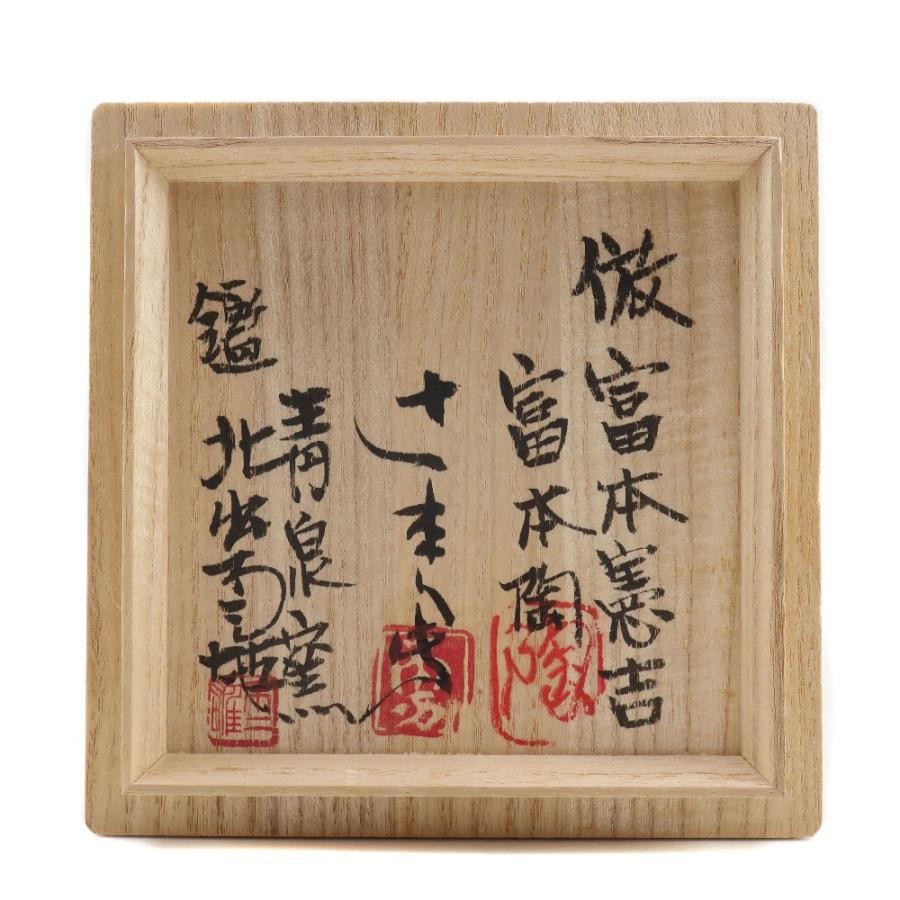 倣富本憲吉
富本陶
青泉窯
鑑 北出不二雄